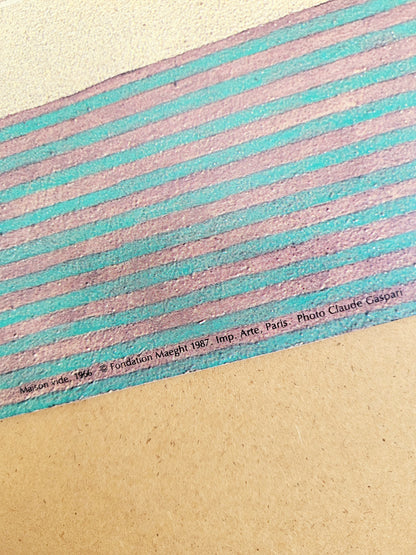 Maison vide, 1966 © Fondation Maeght 1987. Imp. Arte, Paris. Photo Claude Gaspari